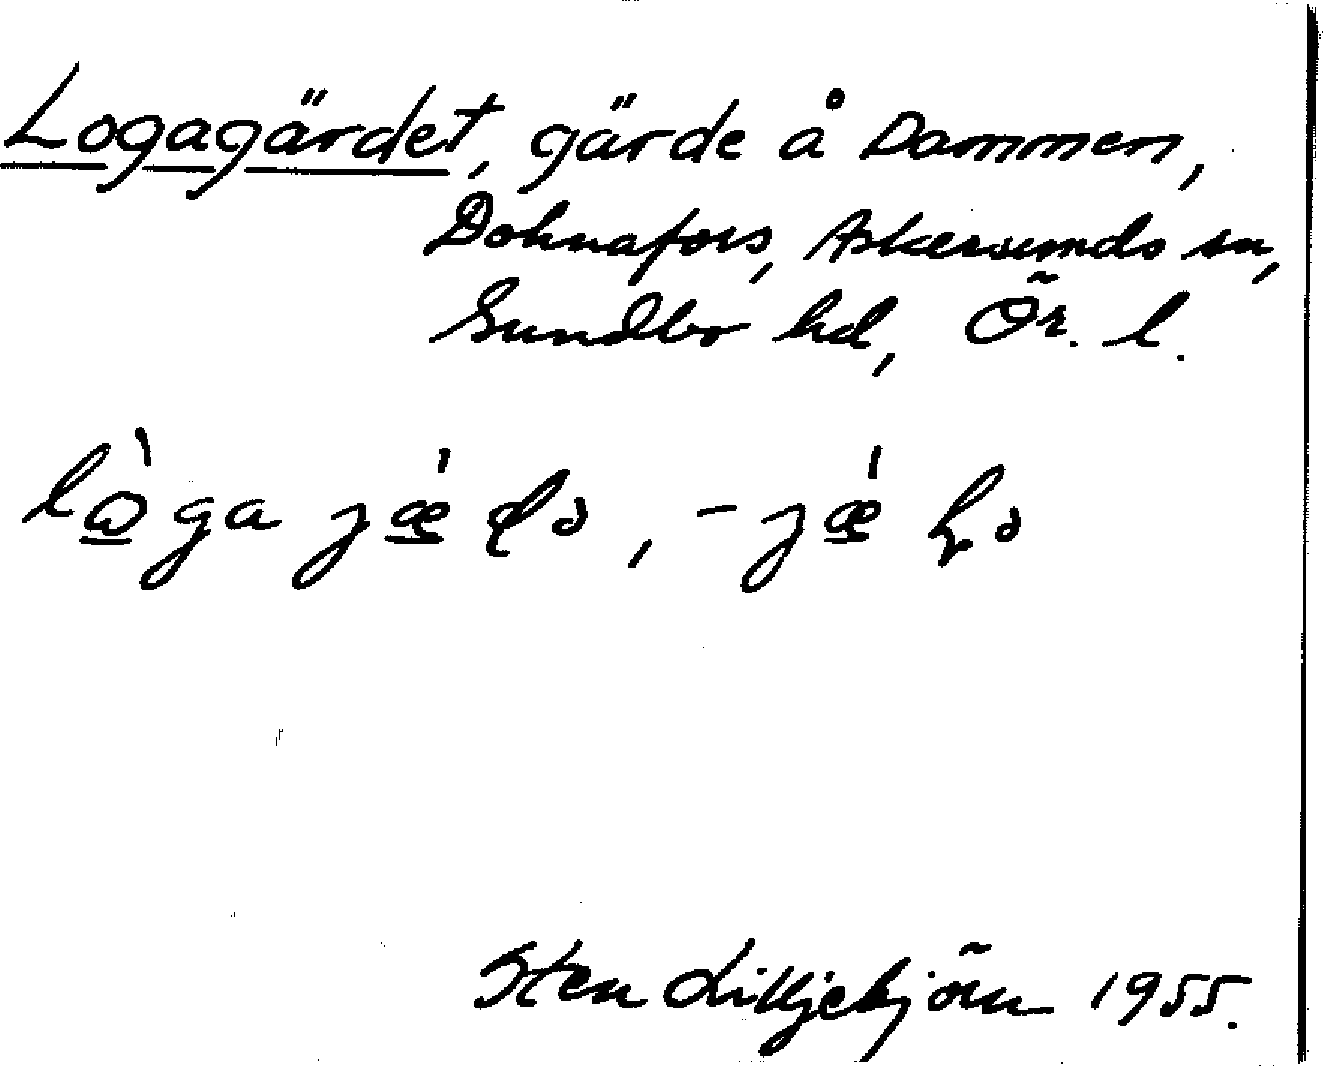 Logagärdet, gärde å Dammen,
Dohnafors, Askersunds sn,
Sundbo hd, Ör. l.
Sten Lilljebjörn 1955.